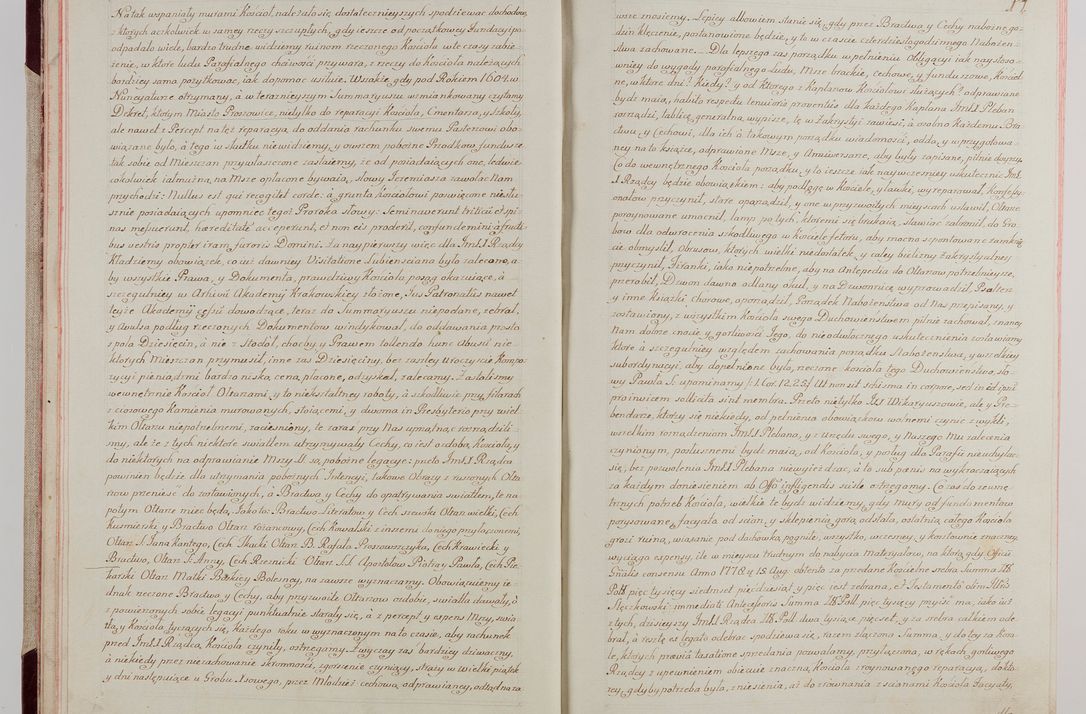 Na tak wspaniały murami Kościoł, należało się dostateczniejszych spodziewać dochodow,
z ktorych aczkolwiek w samey rzeczy szczupłych, gdy ieszcze od początkowey Fundacyi po-
odpadało wiele, bardzo trudne widziemy ruinom rzeczonego Kościoła wte czasy zabie-
żenie, w ktore ludu Parafialnego chciwość przywara, z rzeczy do Kościoła należących
bardziey sama pożytkować, iak dopomoc usiłuie. Wszakże gdy pod Rokiem 1604. w
Nuncyaturze otrzymany, à w teraznieyszym Summaryuszu wzmiankowany czytamy
Dekret, ktorym Miasto Proszowice, nietylko do reparacyi Kościoła, Cmentarza, y Szkoły,
ale nawet z Percept na też reparacyą, do oddania rachunku swemu Pasterzowi obo-
wiązane było, à tego w skutku niewidziemy, y owszem pobożne Przodkow fundusze
tak sobie od Mieszczan przywłaszczone zastaiemy, że od posiadaiących one, ledwie
cokolwiek iałmużną na Msze opłacone bywaią, słowy Jeremiasza zawołać Nam
przychodzi: Nullus est qui recogitet corde: à grunta Kościołowi poswięcone niesłu-
sznie posiadaiących upomniec tegoż Proroka słowy: Seminaverunt triticum et spi-
nas messuerunt, hæreditatem acceperunt, et non eis proderit, confundemini à fructi-
bus vestris propter iram furoris Domini. Za naypierwszy więc dla JmX.X Rządcy
kładziemy obowiązek, co iuż dawniey Visitatione Łubiensciana było zalecono, a-
by wszystkie Prawa, y Dokumenta, prawdziwy Kościoła posąg okazuiące, à
szczegulniey w Arhivű Akademÿ Krakowskiey złożone, Jus Patronatűs nawet
teyże Akademÿ dowodzące, teraz do Summaryuszu niepodane, zebrał,
y avulsa podług rzeczonych Dokumentow windykował, do oddawania prosto
z pola Dziesięcin, à nie z Stodoł, choćby y Prawem tollendo hunc abusű nie-
ktorych Mieszczan przymusił, inne zaś Dziesięciny, bez zaszłey uroczyście Kompo-
zycyi pieniędzmi bardzo niską ceną płacone, odzyskał, zalecamy. Zastaliśmy
wewnętrznie Kościoł Ołtarzami, y to niekształtney roboty, à szkodliwie przy filarach
z ciosowego Kamienia murowanych, stoiącemi, y dwoma in Presbyterio przy wiel-
kim Ołtarzu niepotrzebnemi, zacieśniony, te zaraz przy Nas uprzątnąć rozrządzili-
śmy, ale że z tych niektore swiatłem utrzymywały Cechy, co iest ozdobą Kościoła, y
do niektorych na odprawianie Mszy SS. są pobożne legacye: przeto JmX.X Rządca
powinien będzie dla utrzymania pobożnych Intencyi, takowe Obrazy z ruszonych Ołta-
rzow przeniesć do zostawionych, à Bractwa y Cechy do opatrywania swiatłem, te na-
potym Ołtarze miec będą. Jokoto: Bractwo Literatow y Cech szewski Ołtarz wielki, Cech
Kuśmierski, y Bractwo Ołtarz Rożancowy, Cech Kowalski z inszemi do niego przyłączonemi,
Ołtarz S. Jana Kantego, Cech Tkacki Ołtarz B. Rafała Proszowczyka, Cech Krawiecki y
Bractwo, Ołtarz S. Anny, Cech Rzeznicki Ołtarz S.S. Apostołow Piotra y Pawła, Cech Pie-
karski Ołtarz Matki Bożkiey Bolesney, na zawsze wyznaczamy. Obowiązuiemy ie-
dnak rzeczone Bractwa y Cechy, aby przyzwoite Ołtarzow ozdobie, swiatła dawały, ò
z powierzonych sobie legacyi punktualnie starały się, à z percept y expens Mszy, swia-
tła, y Kościoła tyczących się, każdego roku w wyznaczonym na to czasie, aby rachunek
przed JmX.X Rządcą Kościoła czyniły, ostrzegamy. Zwyczay zaś bardziey dziwaczny,
à niekiedy przez niezachowanie skromności, zgorszenie czyniący, straży w wielki piątek
y dni następuiące u Grobu Xsowego, przez Młodzież cechową odprawianey, odtąd na za-
17
wsze znosiemy. Lepiey albowiem stanie się, gdy przez Bractwa y Cechy nabożne go-
dzin klęczenie, postanowione będzie, y to w czasie czterdziestogodzinnego Nabożeń-
stwa zachowane. Dla lepszego zaś porządku w pełnieniu Obligacyi iak naystoso-
wniey do wygody parafialnego Ludu, Msze brackie, cechowe, y funduszowe, Kościel-
ne, w ktore dni? kiedy? y od ktorego z Kapłanow Kościołowi służących? odprawiane
bydź maią, habito respectu tenuioris proventűs dla każdego Kapłana JmX.X Pleban
rozrządzi, tablicę generalną wypisze, tę w Zakrystyi zawiesi, à osobno Każdemu Bra-
ctwu y Cechowi, dla ich o takowym porządku wiadomości, odda, y w przygotowa-
ney na to książce, odprawione Msze, y Aniwersarze, aby były zapisane, pilnie doyrzy.
Co do wewnętrznego Kościoła porządku, y to ieszcze iak naywczesniey uskutecznić JmX
X Rządcy będzie obowiązkiem: aby podłogę w Kościele, y ławki, wyreparował, Konfessy-
onałow przyczynił, stare oporządził, y one w przyzwoitych mieyscach ustawił, Ołtarze
porysowane umocnił, lamp po tych, ktoremi się brukaią, stawiać zabronił, do Gro-
bow dla odwrocenia szkodliwego w Kościele fetoru, aby mocno szpontowane zamknię-
cie obmyslił, Obrusow, ktorych wielki niedostatek, y całey bielizny zakrystyalney
przyczynił, Firanki, iako niepotrzebne, aby na Antepedia do Ołtarzow potrzebnieysze,
przerobił, Dzwon dawno odlany okuł, y na Dzwonnicę wyprowadził, Psałterz
y inne książki chorowe, oporządził, Porządek Nabożeństwa od Nas przepisany, y
zostawiony, z wszystkim Kościoła swego Duchowieństwem pilnie zachował, znaney
Nam dobrze cnocie, y gorliwości Jego, do nieodwłocznego uskutecznienia zostawiamy
ktore à szczegulniey względem zachowania porządku Nabożeństwa, y wszelkiey
subordynacyi, aby dopełnione było, rzeczone kościoła tego Duchowieństwo, sło-
wy Pawła S. upominamy /:1. Cor. 12. 25:/ Ut non sit schisma in corpore, sed in id ipsű
pro invicem sollicita sint membra. Przeto nietylko XX Wikaryuszowie, ale y Pre-
bendarze, ktorzy się niekiedy, od pełnienia obowiązkow wolnemi czynić zwykli,
wszelkim rozrządzeniom JmX.X Plebana, y z urzędu swego, y Naszego Mu zalecenia
czynionym, posłusznemi bydź maią, od Kościoła, y posług dla Parafii nieuchylać
się, bez pozwolenia JmX.X Plebana niewyieżdzać, à to sub pænis na wykraczaiących
za każdym doniesieniem ab Offo infligendis scisłe ostrzegamy. Co zaś do zewnę-
trznych potrzeb Kościoła, wielkie te bydź widziemy, gdy mury od fundamentow
porysowane, facyata od scian, y sklepienia gorą odstała, ostatnią całego Kościoła
grozi ruiną, wiązanie pod dachowką pogniłe, wszystko, wczesney, y kosztownie znaczney
wyciąga expensy, ile w mieyscu trudnym do nabycia materyałow, na ktorą gdy Officii
Gnālis consensu Anno 1778. 15. Aug. obtento za przedane Kościelne srebra Summa Zł.
Poll: pięc tysięcy siedmset piędziesiąt, y pięc iest zebrana, ex Testamento olim Illris
Slęczkowski immediati Antecessoris Summa Zł. Poll. pięc tysięcy przyiść ma, iako iuż
z tych, dzisieyszy JmX.X Rządca Zł. Poll. dwa tysiące, pięćset, y za srebra całkiem ode-
brał, à resztę ex legato odebrać spodziewa się, razem złączona Summa y do tey za kora-
le, ktorych præviâ taxatione sprzedania pozwalamy, przyłączona, w rękach gorliwego
Rządcy z upewnieniem obiecuie znaczną Kościoła zruynowanego reparacyą, do kto-
rey, gdyby potrzeba była, zniesienia, aż do zrownania z scianami Kościoła Facyaty,